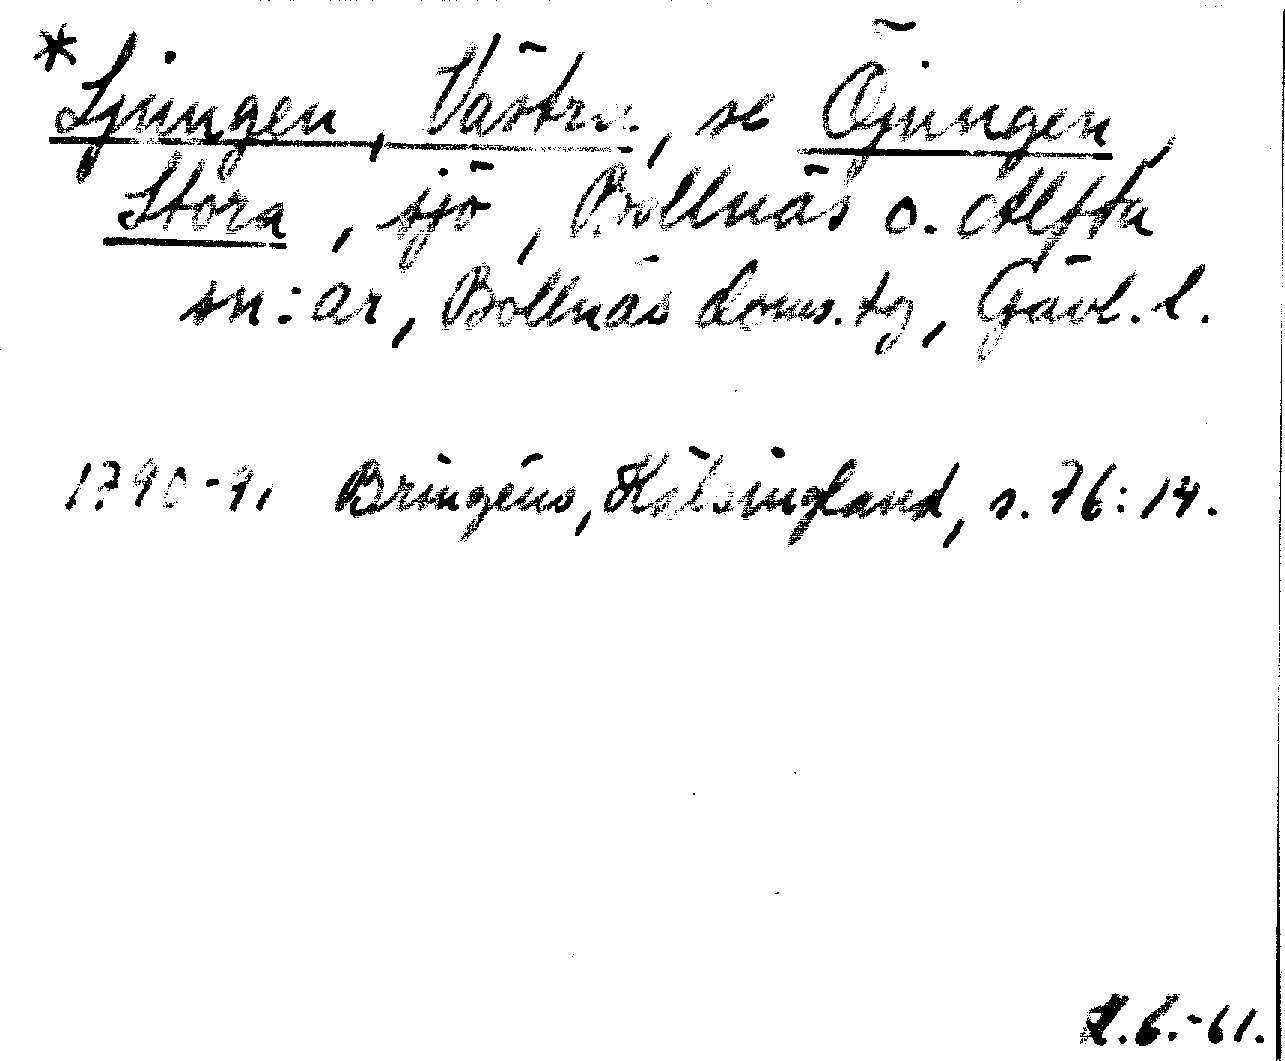 * Ljungen, Västra, se Öjungen
Stora, sjö, Bollnäs o. Alfta
sn:ar, Bollnäs doms.tg, Gävl. l.
1790-91 Bringéus, Hälsingland, s. 76:14.
R.B.-61.